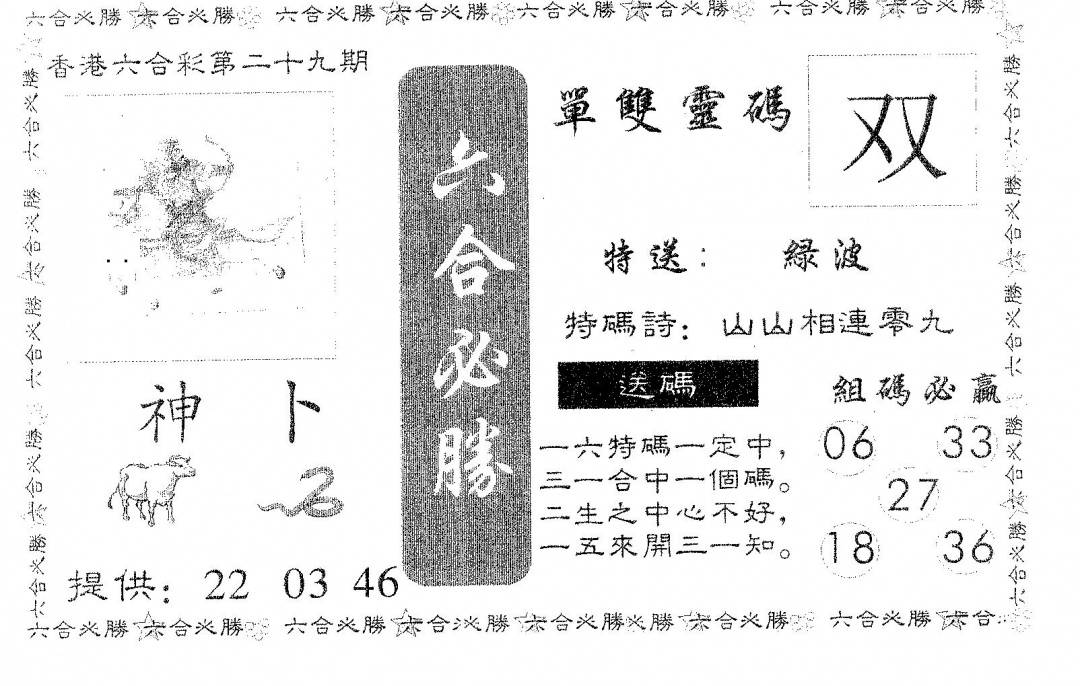 六合必勝 六合必勝 六合必勝 六合必勝 六合必勝 六合必勝 六合必勝 六合必勝
香港六合彩第二十九期
六合必勝
單雙靈碼
双
特送： 綠波
特碼詩：山山相連零九
送碼
一六特碼一定中，
三一合中一個碼。
二生之中心不好，
一五來開三一知。
組碼必贏
06 33
27
18 36
神卜
提供：22 03 46
六合必勝 六合必勝 六合必勝 六合必勝 六合必勝
六合必勝 六合必勝 六合必勝 六合必勝 六合必勝
六合必勝 六合必勝 六合必勝 六合必勝 六合必勝 六合必勝 六合必勝 六合